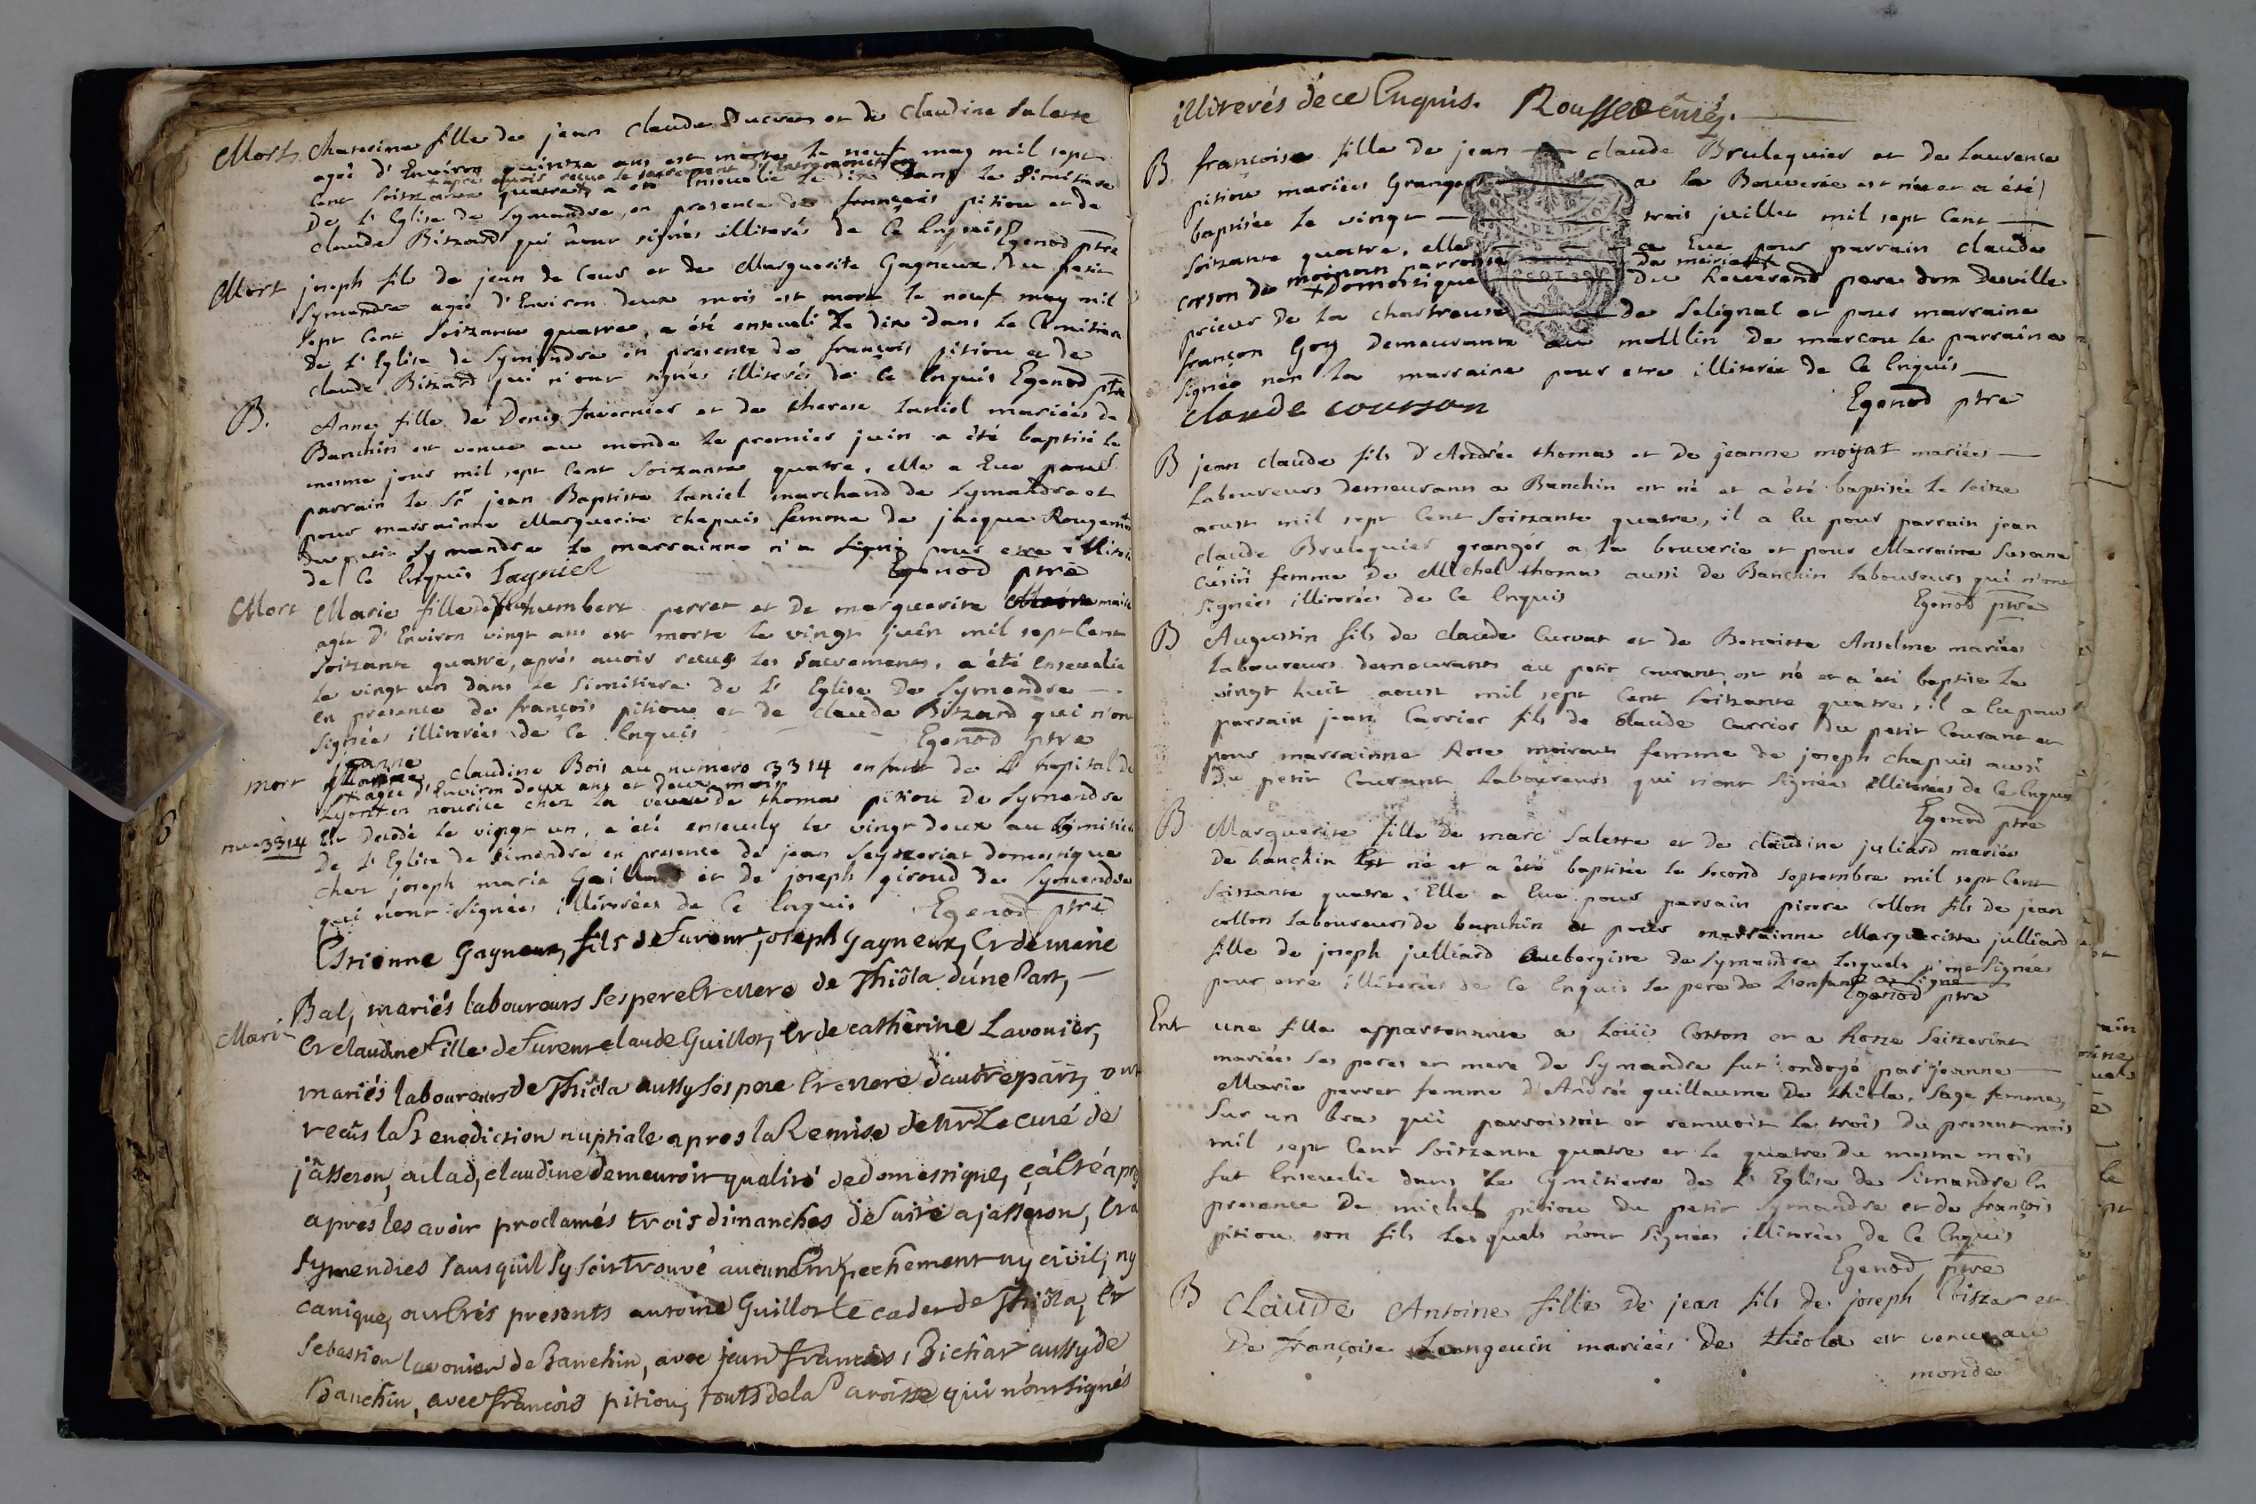 Mort
Catherine fille de jean claude Ducrens et de Claudine Salesse
ageé d'Environ quinsze ans est morte le neuf may mil sept
+ apre avoir recue le sacrement d'
Cent Soizzante quatre+ a été Ensevelie le dix dans le Simétiere
De l'Eglise de Symandre, en presence de françois pitiou et de
claude Bitzard qui n'ont signés illiterés de Ce Enquis Egenod ptre
Mort
joseph fils de jean de Cour et de Marguerite Gagneux Du petit
Symandre agée d'Environ deux mois est mort le neuf may mil
Sept Cent Soizzante quatre, a été enseveli Le dix dans le Cimitiere
De l'Eglise de Symandre en presence de françois pitiou et de
claude Bitzard qui n'ont signés illiterés de Ce Enquis Egenod ptre
B.
Anne fille de Denis Favernier et de therese Laniel mariées de
Banchin est venue au monde Le premier juin a été baptisé le
mesme jour mil sept Cent Soizzante quatre, elle a Eue pour
parrain le Sr jean Baptiste Laniel marchand de Symandre et
pour marrainne Marguerite chapuis femme de jacque Rougemt
du petit Symandre la marrainne n'a Signé pour etre illiteré
de Ce Enquis Lagniel Egenod ptre
Mort
Marie fille de feu humbert perret et de marguerite maite
agée d'Environ vingt ans est morte le vingt juin mil sept Cent
Soizzante quatre, après avoir recue les Sacrements, a été Ensevelie
le vingt un dans le Simitiere de l'Eglise de Symandre —.
En presence de françois pitiou et de claude Bitzard qui n'ont
Signées illiterées de Ce Enquis — — Egenod ptre
mort
jeanne
Claudine Bois au numero 3314 enfant de l'hopital de
+ agée d'Environ deux ans et deux mois
Lyont en nourice chez La veuve de thoma pitiou de Symandre
nu=3314
Est decédé le vingt un, a été ensevely le vingt deux au Cymitiere
De l'Eglise de Simandre en presence de jean Seyszeriat domestique
chez joseph maria Gaillard et de joseph giroud de Symandre
qui n'ont Signées illiterées de Ce Enquis Egenod ptre
Estienne Gagneux, fils de Furent joseph Gagneux, Et de marie
Bal, mariés laboureurs Ses pere Et Mere de Thiôla d'une Part, —
Mari
Et claudine Fille de Furent claude Guillot, Et de cathèrine Lavonier,
mariés laboureurs de Thiôla aussy Ses pere Et Mere d'autre part, ont
recûs la Benediction nuptiale apres la Remise de Mr Le curé de
jâsseron, où lad, claudine Demeuroit qualité de domestique, ç'a Esté apres
apres les avoir proclamés trois dimanches de Suite a jasseron, Et a
Symendres Sans qu'il Sy Soit trouvé aucun Empechement ny civil, ny
canique, ont Estés presents antoine Guillot le cadet de Thiôla, Et
Sebastien Lavonier de Banchin, avec jean François Bichat aussy de
Banchin, avec François pitiou, touts de la Paroisse qui n'ont signés
illiterés de ce Enquis. Rousset curé. —
B
françoise fille de jean — claude Brulequier et de Laurence
pitiou mariées Granger — a la Bouverie est née et a été
baptisée le vingt — trois juillet mil sept Cent —
Soizzante quatre, elle — a Eue pour parrain claude
corson de moinan parroisse — de
+Domestique — Du Reverend pere dom Deville
prieur de la chartreuse — de Selignat et pour marraine
françon Goy demeurante au mollin de marcou le parrain a
Signée non la marraine pour etre illiterée de Ce Enquis —
Claude courson Egenod ptre
B
jean claude fils d'Andrée thomas et de jeanne moyat mariées —
Laboureurs demeurants a Banchin est né et a été baptisée le Seize
aoust mil sept Cent Soizzante quatre, il a Eu pour parrain jean
claude Brulequier granger a la bouverie et pour Marraine Susanne
Cusin femme de Michel thomas aussi de Banchin laboureurs qui n'ont
Signées illiterées de Ce Enquis Egenod ptre
B
Augustin fils de claude Curvat et de Benoitte Anselme mariées
Laboureurs demeurants au petit courant, est né et a été baptisé le
vingt huit aoust mil sept Cent Soizzante quatre, il a Eu pour
parrain jean Carrier fils de Claude Carrier du petit Courant et
pour marrainne Rose moiroud femme de joseph chapuis aussi
Du petit Courant Laboureurs qui n'ont Signées illiterées de Ce Enquis
Egenod ptre
B
Marguerite fille de marc Salesse et de claudine juliard mariées
De banchin Est né et a été baptisée le Second Septembre mil sept Cent
Soizzante quatre, Elle a Eue pour parrain pierre collon fils de jean
collon laboureurs de banchin et pour marrainne Margueritte julliard
fille de joseph julliard aubergiste de Symandre Lesquels n'ont Signées
pour etre illiterées de Ce Enquis le pere de L'enfant a Signé
Egenod ptre
Ent
une fille appartenante a Loüis Corton et a Rosse Seiszeriat
mariées Ses peres et mere de Symandre fut ondoyé par jeanne —
Marie perret femme d'Andrée guillaume De thiola, Sage femme,
Sur un bras qui parroissoit et remuoit Le trois du present mois
mil sept Cent Soizzante quatre et le quatre du mesme mois
fut Ensevelie dans Le Cymitierre de l'Eglise de Simandre En
presence De michel pitiou du petit Symandre et de françois
pitiou son fils Lesquels n'ont Signées illiterées de Ce Enquis
Egenod ptre
B
CLAUDE Antoine fille de jean fils de joseph Bitzar et
De Françoise Leangevin mariées de thiola est venue au
monde